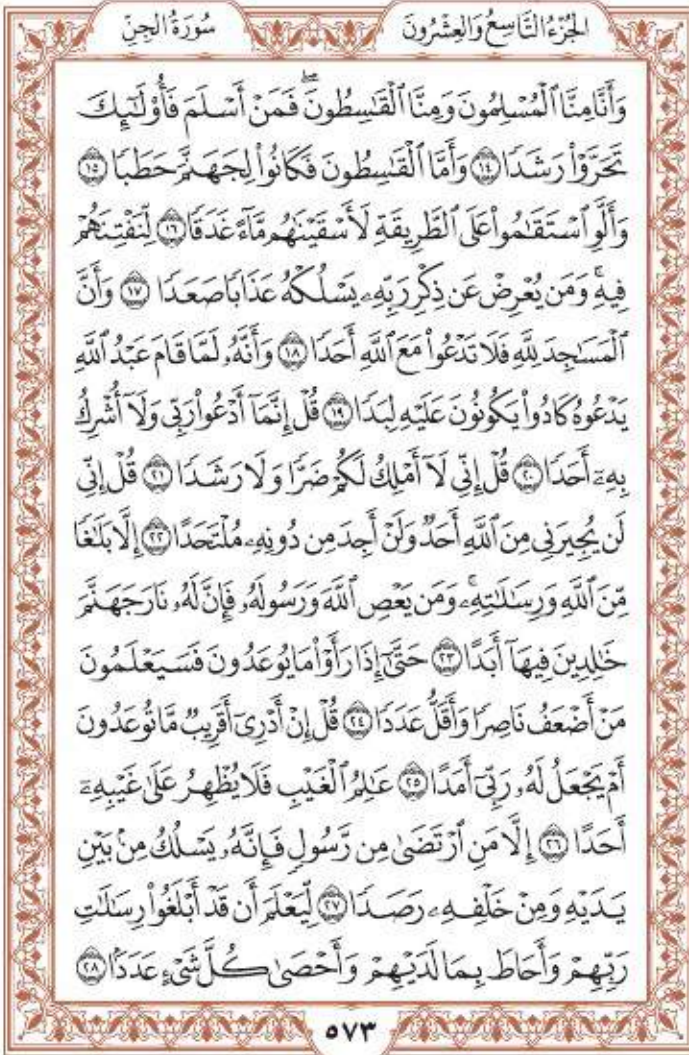 سُورَةُ الجِنِّ
الجُزْءُ التَّاسِعُ وَالعِشْرُونَ
وَأَنَّا مِنَّا ٱلْمُسْلِمُونَ وَمِنَّا ٱلْقَٰسِطُونَۖ فَمَنْ أَسْلَمَ فَأُوْلَٰٓئِكَ
تَحَرَّوْاْ رَشَدٗا ١٤ وَأَمَّا ٱلْقَٰسِطُونَ فَكَانُواْ لِجَهَنَّمَ حَطَبٗا ١٥
وَأَلَّوِ ٱسْتَقَٰمُواْ عَلَى ٱلطَّرِيقَةِ لَأَسْقَيْنَٰهُم مَّآءً غَدَقٗا ١٦ لِّنَفْتِنَهُمْ
فِيهِۚ وَمَن يُعْرِضْ عَن ذِكْرِ رَبِّهِۦ يَسْلُكْهُ عَذَابٗا صَعَدٗا ١٧ وَأَنَّ
ٱلْمَسَٰجِدَ لِلَّهِ فَلَا تَدْعُواْ مَعَ ٱللَّهِ أَحَدٗا ١٨ وَأَنَّهُۥ لَمَّا قَامَ عَبْدُ ٱللَّهِ
يَدْعُوهُ كَادُواْ يَكُونُونَ عَلَيْهِ لِبَدٗا ١٩ قُلْ إِنَّمَآ أَدْعُواْ رَبِّي وَلَآ أُشْرِكُ
بِهِۦٓ أَحَدٗا ٢٠ قُلْ إِنِّي لَآ أَمْلِكُ لَكُمْ ضَرّٗا وَلَا رَشَدٗا ٢١ قُلْ إِنِّي
لَن يُجِيرَنِي مِنَ ٱللَّهِ أَحَدٞ وَلَنْ أَجِدَ مِن دُونِهِۦ مُلْتَحَدًا ٢٢ إِلَّا بَلَٰغٗا
مِّنَ ٱللَّهِ وَرِسَٰلَٰتِهِۦۚ وَمَن يَعْصِ ٱللَّهَ وَرَسُولَهُۥ فَإِنَّ لَهُۥ نَارَ جَهَنَّمَ
خَٰلِدِينَ فِيهَآ أَبَدًا ٢٣ حَتَّىٰٓ إِذَا رَأَوْاْ مَا يُوعَدُونَ فَسَيَعْلَمُونَ
مَنْ أَضْعَفُ نَاصِرٗا وَأَقَلُّ عَدَدٗا ٢٤ قُلْ إِنْ أَدْرِيٓ أَقَرِيبٞ مَّا تُوعَدُونَ
أَمْ يَجْعَلُ لَهُۥ رَبِّيٓ أَمَدًا ٢٥ عَٰلِمُ ٱلْغَيْبِ فَلَا يُظْهِرُ عَلَىٰ غَيْبِهِۦٓ
أَحَدًا ٢٦ إِلَّا مَنِ ٱرْتَضَىٰ مِن رَّسُولٖ فَإِنَّهُۥ يَسْلُكُ مِنۢ بَيْنِ
يَدَيْهِ وَمِنْ خَلْفِهِۦ رَصَدٗا ٢٧ لِّيَعْلَمَ أَن قَدْ أَبْلَغُواْ رِسَٰلَٰتِ
رَبِّهِمْ وَأَحَاطَ بِمَا لَدَيْهِمْ وَأَحْصَىٰ كُلَّ شَيْءٍ عَدَدَۢا ٢٨
٥٧٣